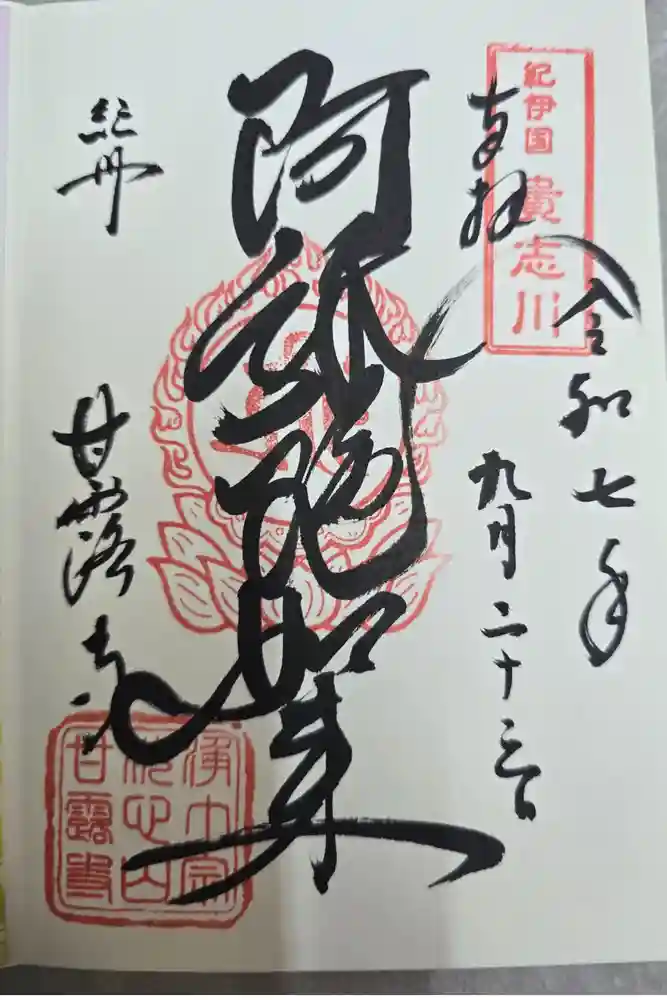 紀伊国 貴志川
奉拝
令和七年
九月二十三日
阿弥陀如来
紀州
甘露寺
浄土宗
甘露寺